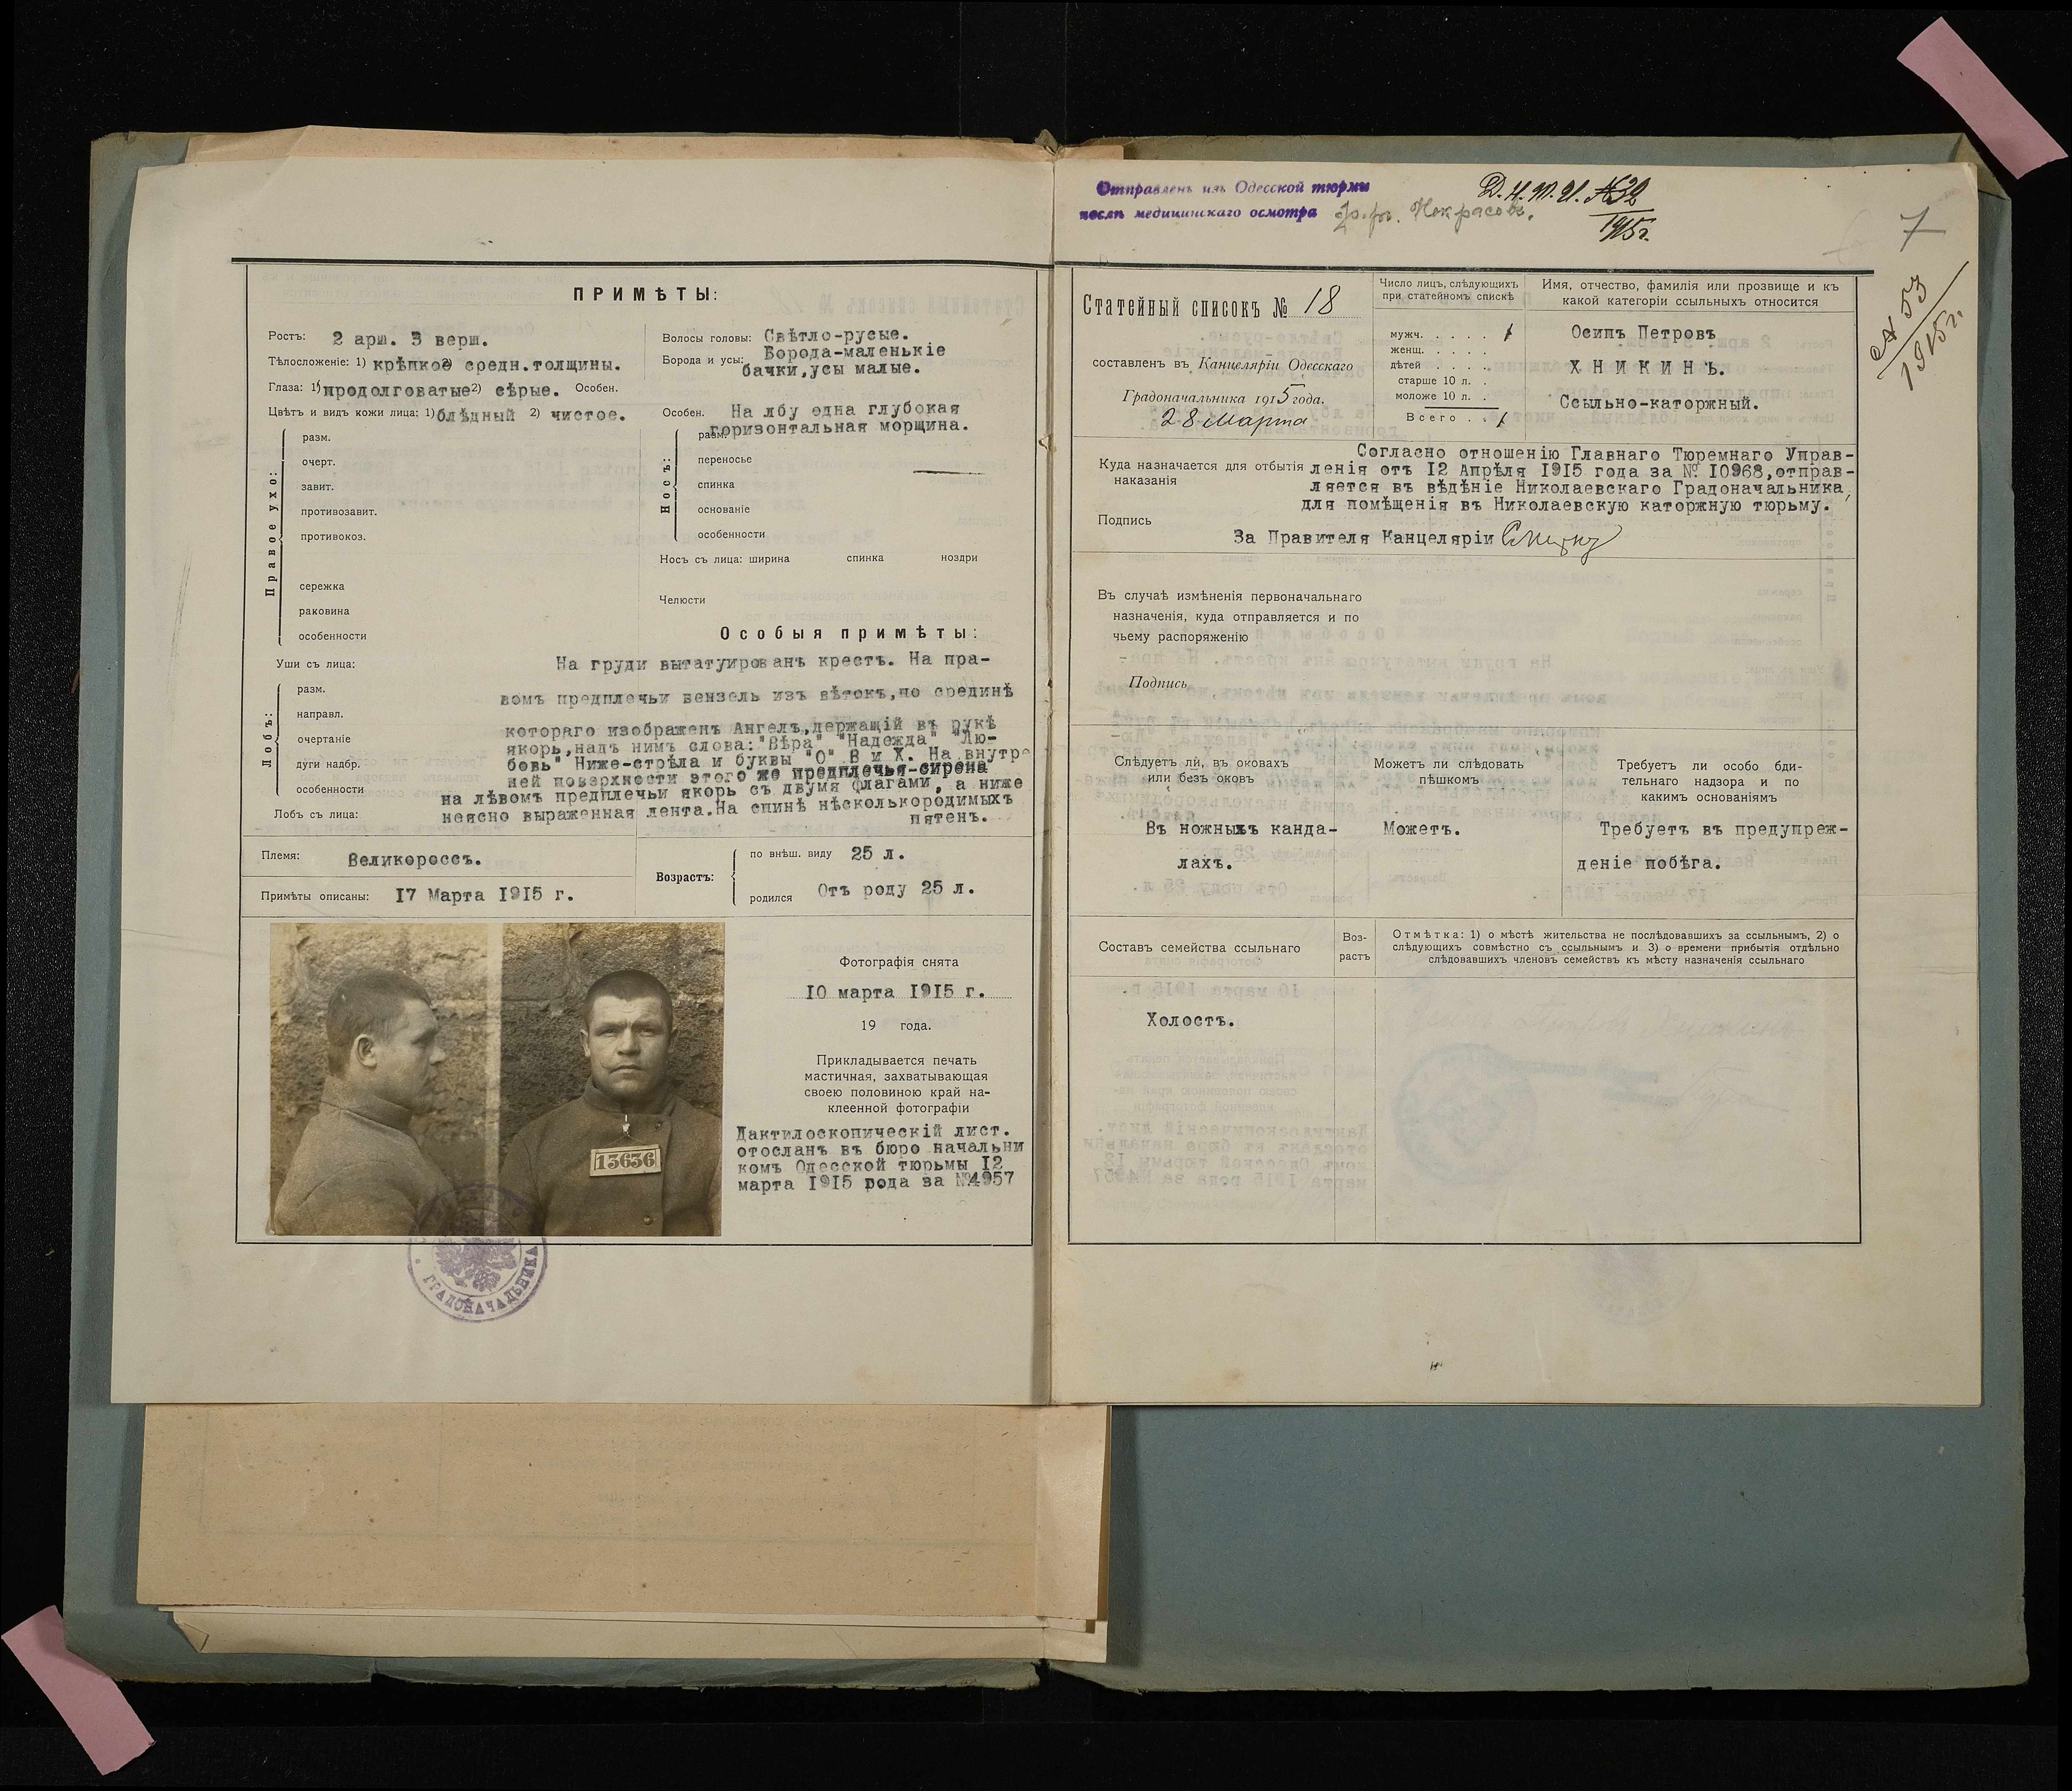 ПРИМѢТЫ:
Ростъ: 2 арш. 3 верш.
Тѣлосложеніе: 1) крѣпкое средн.толщины.
Глаза: 1) продолговатые 2) сѣрые. Особен.
Цвѣтъ и видъ кожи лица: 1) блѣдный 2) чистое.
Волосы головы: Свѣтло-русые.
Борода и усы: Борода-маленькіе
бачки,усы малые.
Особен. На лбу одна глубокая
горизонтальная морщина.
Правое ухо:
разм.
очерт.
завит.
противозавит.
противокоз.
сережка
раковина
особенности
Уши съ лица:
Носъ:
разм.
переносье
спинка
основаніе
особенности
Носъ съ лица: ширина спинка ноздри
Челюсти
Лобъ:
разм.
направл.
очертаніе
дуги надбр.
особенности
Лобъ съ лица:
Особыя примѣты:
На груди вытатуированъ крестъ. На пра-
вомъ предплечьи вензель изъ вѣтокъ,по срединѣ
котораго изображенъ Ангелъ,держащій въ рукѣ
якорь,надъ нимъ слова:"Вѣра" "Надежда" "Лю-
бовь" Ниже-стрѣла и буквы "О" В и Х. На внутре
ней поверхности этого же предплечья-сирена
на лѣвомъ предплечьи якорь съ двумя флагами, а ниже
неясно выраженная лента.На спинѣ нѣсколькородимыхъ
пятенъ.
Племя: Великороссъ.
Примѣты описаны: 17 Марта 1915 г.
Возрастъ:
по внѣш. виду 25 л.
родился Отъ роду 25 л.
13636
Фотографія снята
10 марта 1915 г.
19 года.
Прикладывается печать
мастичная, захватывающая
своею половиною край на-
клеенной фотографіи
Дактилоскопическій лист.
отосланъ въ бюро начальни
комъ Одесской тюрьмы 12
марта 1915 рода за №4957
ГРАДОНАЧАЛЬНИКА
Отправленъ изъ Одесской тюрмы
послѣ медицинскаго осмотра
Некрасовъ.
№32
1915г.
7
№ 53
1915г.
Статейный списокъ № 18
составленъ въ Канцеляріи Одесскаго
Градоначальника 1915 года.
28 Марта
Число лицъ, слѣдующихъ
при статейномъ спискѣ
мужч. . . . . 1
женщ. . . . .
дѣтей . . . .
старше 10 л. .
моложе 10 л. .
Всего . . 1
Имя, отчество, фамилія или прозвище и къ
какой категоріи ссыльныхъ относится
Осипъ Петровъ
ХНИКИНЪ.
Ссыльно-каторжный.
Куда назначается для отбытія
наказанія
Согласно отношенію Главнаго Тюремнаго Управ-
ленія отъ 12 Апрѣля 1915 года за № 10968,отправ-
ляется въ вѣдѣніе Николаевскаго Градоначальника,
для помѣщенія въ Николаевскую каторжную тюрьму.
Подпись
За Правителя Канцеляріи
Въ случаѣ измѣненія первоначальнаго
назначенія, куда отправляется и по
чьему распоряженію
Подпись
Слѣдуетъ ли, въ оковахъ
или безъ оковъ
Въ ножныхъ канда-
лахъ.
Можетъ ли слѣдовать
пѣшкомъ
Можетъ.
Требуетъ ли особо бди-
тельнаго надзора и по
какимъ основаніямъ
Требуетъ въ предупреж-
деніе побѣга.
Составъ семейства ссыльнаго
Воз-
растъ
Отмѣтка: 1) о мѣстѣ жительства не послѣдовавшихъ за ссыльнымъ, 2) о
слѣдующихъ совмѣстно съ ссыльнымъ и 3) о времени прибытія отдѣльно
слѣдовавшихъ членовъ семействъ къ мѣсту назначенія ссыльнаго
Холостъ.